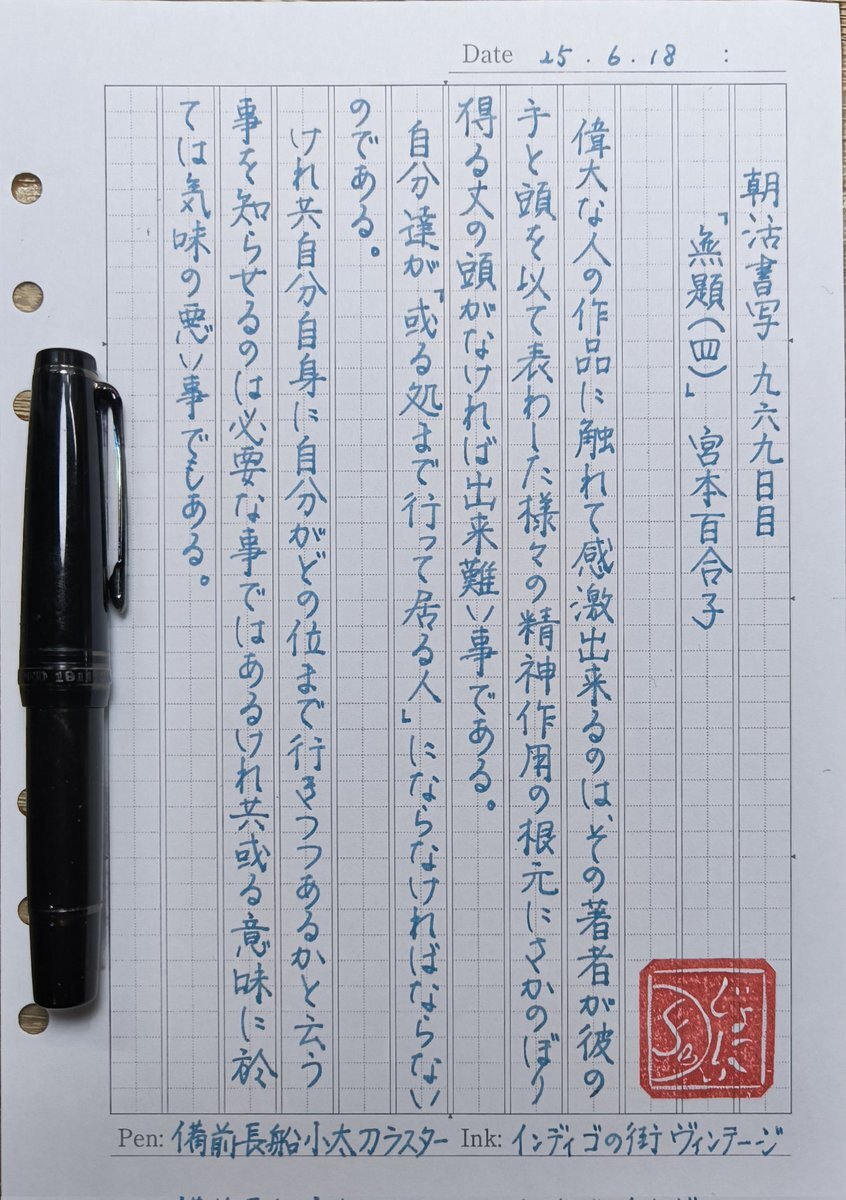 Date 25.6.18 :
朝活書写 九六九日目
「無題(四)」 宮本百合子
偉大な人の作品に触れて感激出来るのは、その著者が彼の
手と頭を以て表わした様々の精神作用の根元にさかのぼり
得る丈の頭がなければ出来難い事である。
自分達が「或る処まで行って居る人」にならなければならない
のである。
けれ共自分自身に自分がどの位まで行きつつあるかと云う
事を知らせるのは必要な事ではあるけれ共或る意味に於
ては気味の悪い事でもある。
Pen: 備前長船小太刀ラスター Ink: インディゴの街 ヴィンテージ